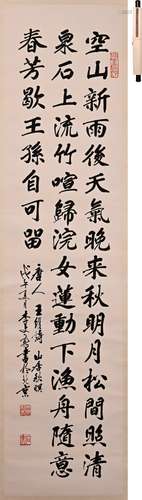 空山新雨後天氣晚來秋明月松間照清
泉石上流竹喧歸浣女蓮動下漁舟隨意
春芳歇王孫自可留
唐人王維詩山居秋暝
戊子夏月李